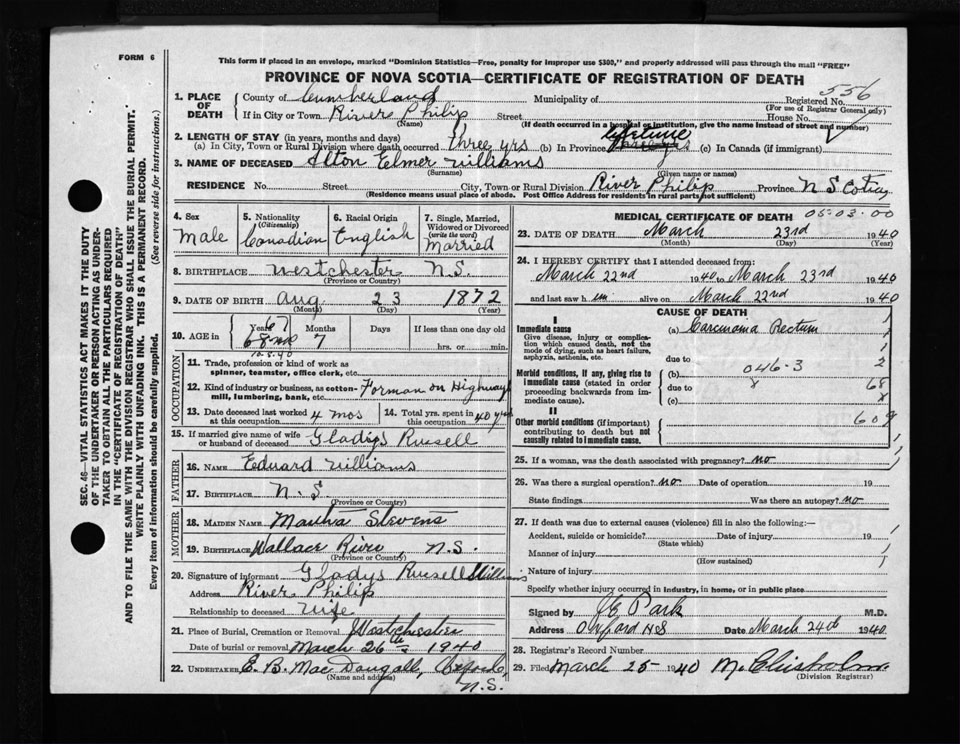 FORM 6
This form if placed in an envelope, marked "Dominion Statistics—Free, penalty for improper use $300," and properly addressed will pass through the mail "FREE"
PROVINCE OF NOVA SCOTIA—CERTIFICATE OF REGISTRATION OF DEATH
SEC. 46—VITAL STATISTICS ACT MAKES IT THE DUTY
OF THE UNDERTAKER OR PERSON ACTING AS UNDER-
TAKER TO OBTAIN ALL THE PARTICULARS REQUIRED
IN THE "CERTIFICATE OF REGISTRATION OF DEATH"
AND TO FILE THE SAME WITH THE DIVISION REGISTRAR WHO SHALL ISSUE THE BURIAL PERMIT.
WRITE PLAINLY WITH UNFADING INK. THIS IS A PERMANENT RECORD.
Every item of information should be carefully supplied. (See reverse side for instructions.)
1. PLACE OF DEATH County of Cumberland Municipality of Registered No. 556
(For use of Registrar General only)
If in City or Town River Philip Street House No.
(Name) (If death occurred in a hospital or institution, give the name instead of street and number)
2. LENGTH OF STAY (in years, months and days)
(a) In City, Town or Rural Division where death occurred three yrs (b) In Province lifetime (c) In Canada (if immigrant)
3. NAME OF DECEASED Alton Elmer Williams
(Surname) (Given name or names)
RESIDENCE No. Street City, Town or Rural Division River Philip Province N Scotia
(Residence means usual place of abode. Post Office Address for residents in rural parts not sufficient)
4. Sex Male
5. Nationality (Citizenship) Canadian
6. Racial Origin English
7. Single, Married, Widowed or Divorced (write the word) Married
8. BIRTHPLACE Westchester N.S.
(Province or County)
9. DATE OF BIRTH Aug 23 1872
(Month) (Day) (Year)
10. AGE in Years 67 68 Months 7 Days If less than one day old hrs. or min.
10.8.40
OCCUPATION
11. Trade, profession or kind of work as spinner, teamster, office clerk, etc.
12. Kind of industry or business, as cotton-mill, lumbering, bank, etc. Forman on Highway
13. Date deceased last worked at this occupation 4 mos
14. Total yrs. spent in this occupation 40 yrs
15. If married give name of wife or husband of deceased Gladys Russell
FATHER
16. NAME Edward Williams
17. BIRTHPLACE N.S.
(Province or Country)
MOTHER
18. MAIDEN NAME Martha Stevens
19. BIRTHPLACE Wallace River, N.S.
(Province or Country)
20. Signature of informant Gladys Russell Williams
Address River Philip
Relationship to deceased Wife
21. Place of Burial, Cremation or Removal Westchester
Date of burial or removal March 26th 1940
22. UNDERTAKER E. B. MacDougall, Oxford, N.S.
(Name and address)
MEDICAL CERTIFICATE OF DEATH 05-03-00
23. DATE OF DEATH March 23rd 1940
(Month) (Day) (Year)
24. I HEREBY CERTIFY that I attended deceased from:
March 22nd 1940 to March 23rd 1940
and last saw h im alive on March 22nd 1940
CAUSE OF DEATH
I
Immediate cause
Give disease, injury or complication which caused death, not the mode of dying, such as heart failure, asphyxia, asthenia, etc.
(a) Carcinoma Rectum
due to
Morbid conditions, if any, giving rise to immediate cause (stated in order proceeding backwards from immediate cause).
(b) 046-3
due to 8
(c)
II
Other morbid conditions (if important) contributing to death but not causally related to immediate cause.
1
1
2
68
8
609
1
1
25. If a woman, was the death associated with pregnancy? no
26. Was there a surgical operation? no Date of operation 19
State findings Was there an autopsy? no
27. If death was due to external causes (violence) fill in also the following:—
Accident, suicide or homicide? Date of injury 19
(State which)
Manner of injury
(How sustained)
Nature of injury
Specify whether injury occurred in industry, in home, or in public place
Signed by J E Park M.D.
Address Oxford N.S Date March 24th 1940
28. Registrar's Record Number
29. Filed March 25- 1940 M. Chisholm
(Division Registrar)